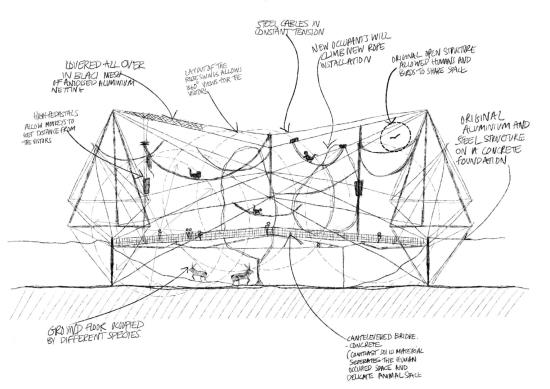 STEEL CABLES IN
CONSTANT TENSION
COVERED ALL OVER
IN BLACK MESH
OF ANODIZED ALUMINIUM
NETTING
LAYOUT OF THE
ROPE SWINGS ALLOWS
360° VIEWS FOR THE
VISITORS
NEW OCCUPANTS WILL
CLIMB NEW ROPE
INSTALLATION
ORIGINAL OPEN STRUCTURE
ALLOWED HUMANS AND
BIRDS TO SHARE SPACE
HIGH PEDASTALS
ALLOW MONKEYS TO
GET DISTANCE FROM
THE VISITORS
ORIGINAL
ALUMINIUM AND
STEEL STRUCTURE
ON A CONCRETE
FOUNDATION
GROUND FLOOR OCCUPIED
BY DIFFERENT SPECIES.
CANTELEVERED BRIDGE.
CONCRETE
(CONTRAST SOLID MATERIAL
SEPERATES THE HUMAN
OCCUPIED SPACE AND
DELICATE ANIMAL SPACE